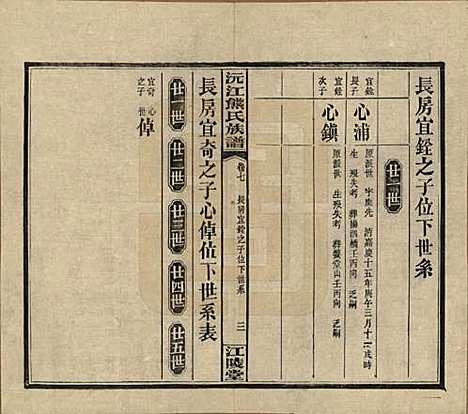 長房宜銓之子位下世系
廿二世
宜銓長子
心浦
原派世 字 先 清嘉慶十五年庚午三月十二戌時
生 歿失考 葬楊泗橋壬丙向 乏嗣
宜銓次子
心鎮
原派世 生歿失考 葬 堂山壬丙向 乏嗣
沅江熊氏族譜
卷七
長房宜銓之子位下世系
三
江陵堂
長房宜奇之子心倬位下世系表
廿一世
廿二世
廿三世
廿四世
廿五世
宜奇之子
心世
倬